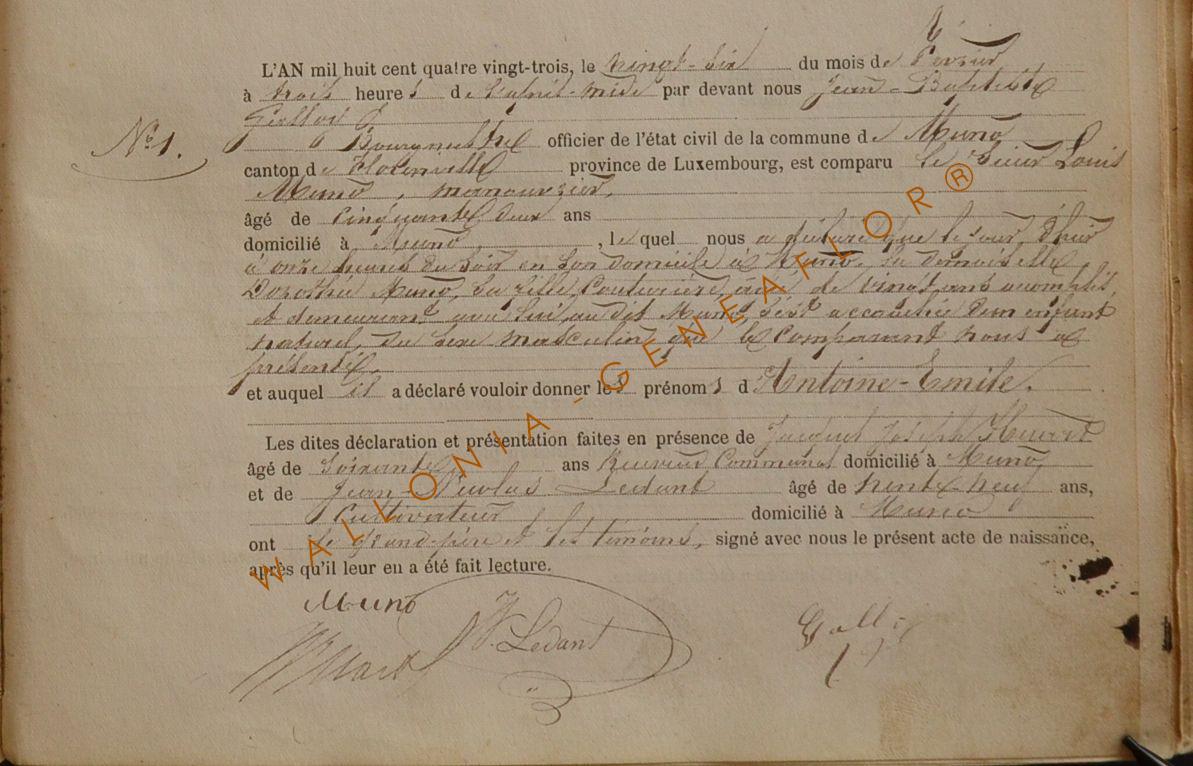 L'AN mil huit cent quatre vingt-trois, le vingt-six du mois de Février
à trois heures de l'après-midi par devant nous Jean-Baptiste
Gallot
Nº 1.
Bourgmestre officier de l'état civil de la commune de Muno
canton de Florenville province de Luxembourg, est comparu le Sieur Louis
Muno, manouvrier,
âgé de cinquante deux ans
domicilié à Muno, , lequel nous a déclaré que le jour d'hier
à onze heures du soir en son domicile à Muno, la demoiselle
Dorothée Muno, sa fille, couturière, âgé de vingt ans acomplis,
et demeurant avec lui au dit Muno s'est accouchée d'un enfant
naturel, du sexe masculin que le comparant nous a
présenté.
et auquel il a déclaré vouloir donner les prénoms d'Antoine-Emile.
Les dites déclaration et présentation faites en présence de Jacques Joseph Huart
âgé de soixante ans Receveur Communal domicilié à Muno
et de Jean-Nicolas Ledant âgé de trente-neuf ans,
Cultivateur domicilié à Muno
ont le grand-père et les témoins, signé avec nous le présent acte de naissance,
après qu'il leur en a été fait lecture.
Muno
Huart
Ledant
WALLONIA - GÉNÉAFLOR®